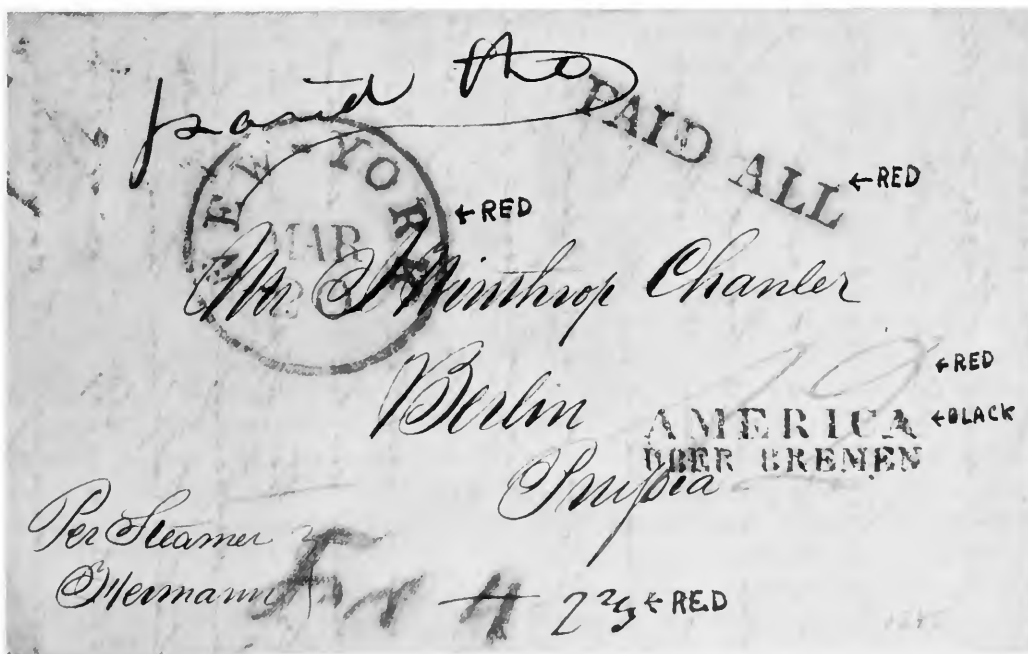 paid the
PAID ALL
←RED
NEW-YORK
MAR
←RED
Mr. J Winthrop Chanler
Berlin
←RED
AMERICA ←BLACK
ÜBER BREMEN
Per Steamer
Hermann
2 2/3 ←RED